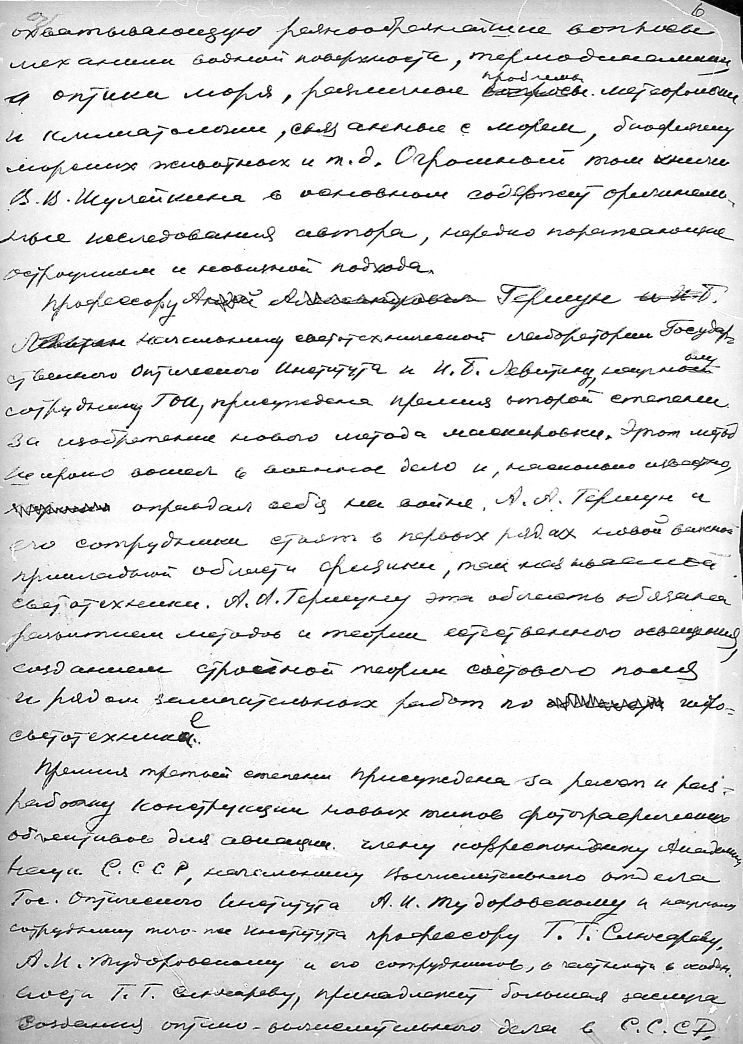 6
охватывающую разнообразнейшие вопросы
механики водной поверхности, термодинамики
и оптики моря, различные вопросы проблемы метеорологии
и климатологии, связанные с морем, биофизику
морских животных и т.д. Огромный том книги
В.В. Шулейкина в основном содержит оригиналь-
ные исследования автора, нередко поражающие
остроумием и новизной подхода.
Профессору Андрей Александрович Гершун и И.Б.
Левитин начальнику светотехнической лаборатории Государ-
ственного Оптического Института и И.Б. Левитину, научному
сотруднику ГОИ, присуждена премия второй степени
за изобретение нового метода маскировки. Этот метод
широко вошел в военное дело и, насколько известно,
оправдал себя на войне. А.А. Гершун и
его сотрудники стоят в первых рядах новой важной
прикладной области физики, так называемой
светотехники. А.А. Гершуну эта область обязана
развитием методов и теории естественного освещения,
созданием стройной теории светового поля
и рядом замечательных работ по гидро-
светотехнике.
Премия третьей степени присуждена за расчет и раз-
работку конструкции новых типов фотографических
объективов для авиации члену корреспонденту Академии
Наук С.С.С.Р., начальнику Вычислительного отдела
Гос. Оптического Института А.И. Тудоровскому и научному
сотруднику того же Института профессору Г.Г. Слюсареву.
А.И. Тудоровскому и его сотрудников, в частности в особен-
ности Г.Г. Слюсареву, принадлежит большая заслуга
создания оптико-вычислительного дела в С.С.С.Р.